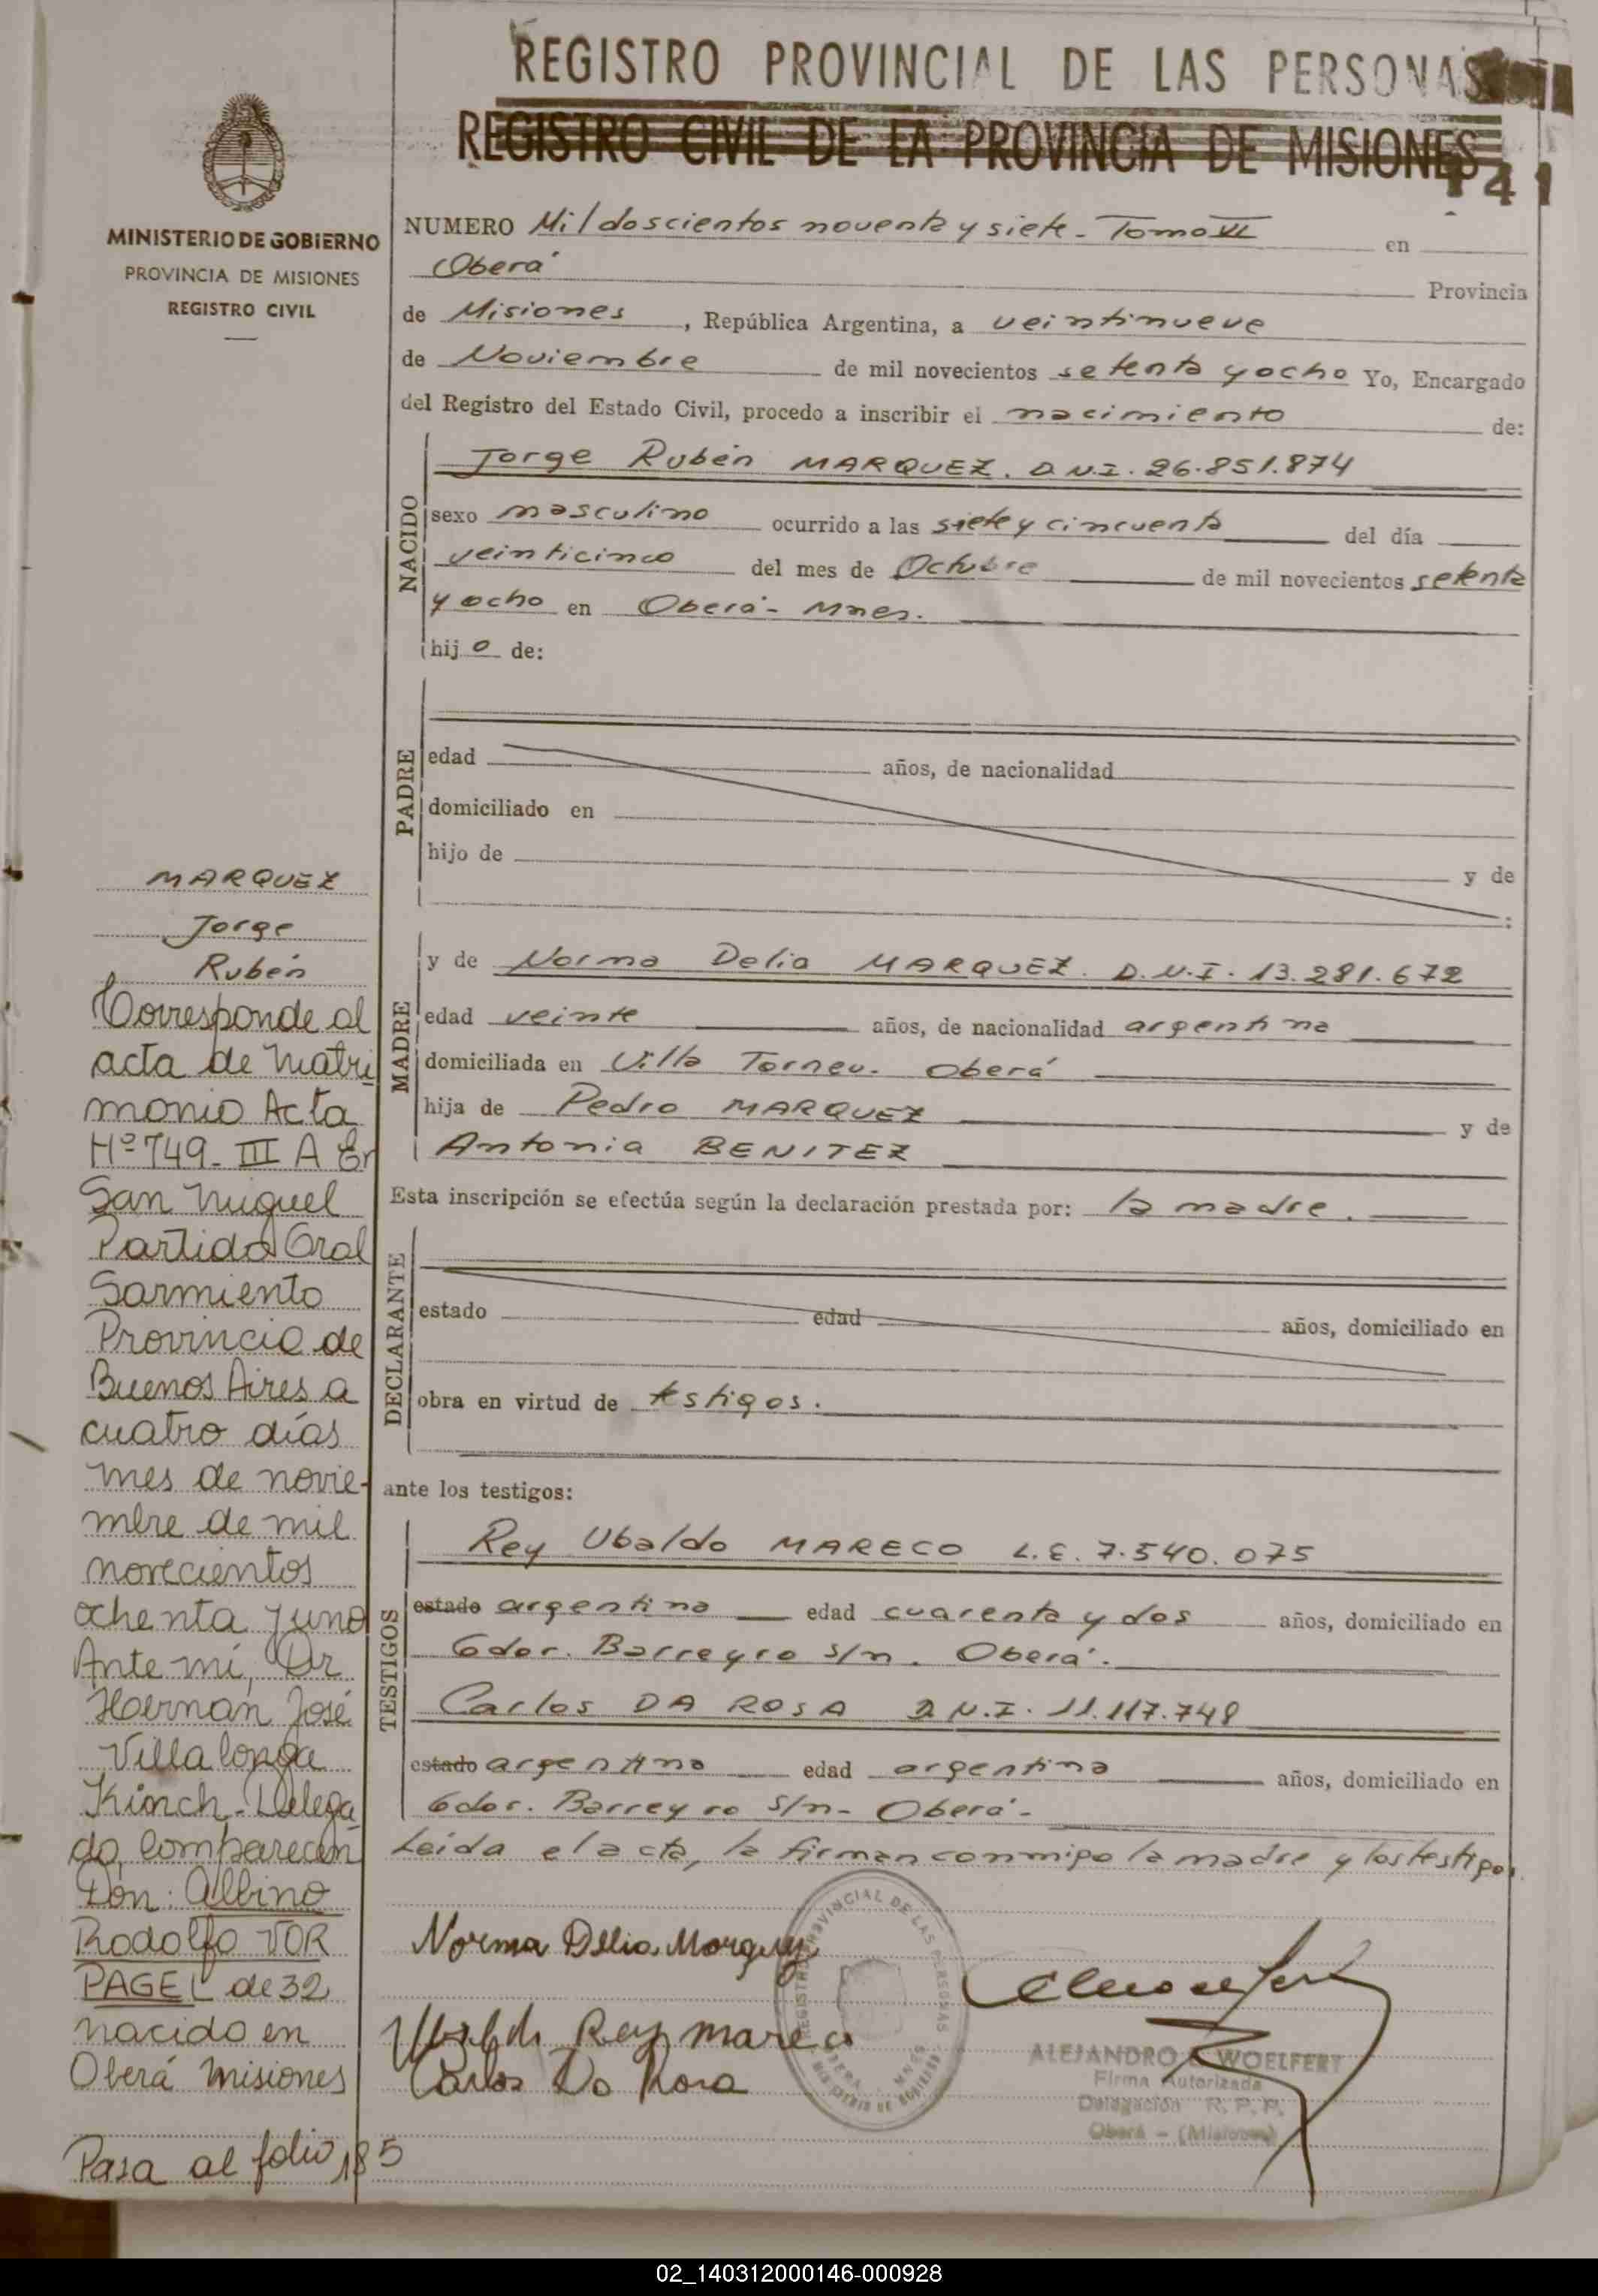 REGISTRO PROVINCIAL DE LAS PERSONAS
REGISTRO CIVIL DE LA PROVINCIA DE MISIONES
141
MINISTERIO DE GOBIERNO
PROVINCIA DE MISIONES
REGISTRO CIVIL
NUMERO Mil doscientos noventa y siete - Tomo VI en
Oberá Provincia
de Misiones, República Argentina, a veintinueve
de Noviembre de mil novecientos setenta y ocho Yo, Encargado
del Registro del Estado Civil, procedo a inscribir el nacimiento de:
NACIDO
Jorge Rubén MARQUEZ. D.N.I. 26.851.874
sexo masculino ocurrido a las siete y cincuenta del día
veinticinco del mes de Octubre de mil novecientos setenta
y ocho en Oberá - Mnes.
hijo de:
PADRE
edad años, de nacionalidad
domiciliado en
hijo de y de
MADRE
y de Norma Delia MARQUEZ. D.N.I. 13.281.672
edad veinte años, de nacionalidad argentina
domiciliada en Villa Torneu. Oberá
hija de Pedro MARQUEZ y de
Antonia BENITEZ
Esta inscripción se efectúa según la declaración prestada por: la madre.
DECLARANTE
estado edad años, domiciliado en
obra en virtud de testigos.
ante los testigos:
TESTIGOS
Rey Ubaldo MARECO L.E. 7.540.075
estado argentina edad cuarenta y dos años, domiciliado en
Gdor. Barreyro s/n. Oberá.
Carlos DA ROSA D.N.I. 11.117.748
estado argentina edad argentina años, domiciliado en
Gdor. Barreyro s/n - Oberá -
Leída el acta, la firman conmigo la madre y los testigos.
Norma Delia Marquez
Ubaldo Rey mareco
Carlos Da Rosa
REGISTRO PROVINCIAL DE LAS PERSONAS
MINISTERIO DE GOBIERNO
OBERA - MNES
ALEJANDRO WOELFERT
Firma Autorizada
Delegación R. P. P.
Oberá - (Misiones)
MARQUEZ
Jorge
Rubén
Corresponde al
acta de Matri
monio Acta
Nº 749 - III A En
San Miguel
Partido Gral
Sarmiento
Provincia de
Buenos Aires a
cuatro días
mes de novie-
mbre de mil
novecientos
ochenta y uno
Ante mí, Dr
Hernán José
Villalonga
Kinch - Delega
do, comparecen
Don: Albino
Rodolfo VOR
PAGEL de 32
nacido en
Oberá Misiones
Pasa al folio 185
02_140312000146-000928